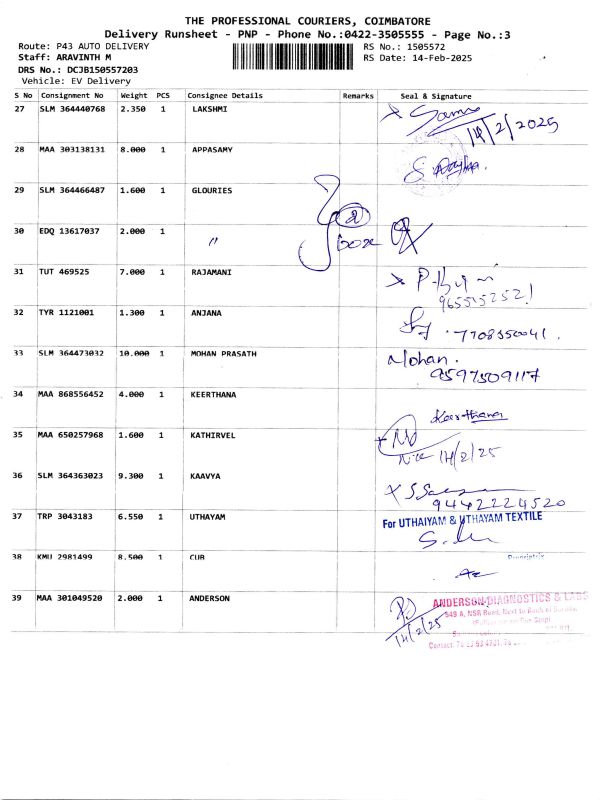 THE PROFESSIONAL COURIERS, COIMBATORE
Delivery Runsheet - PNP - Phone No.:0422-3505555 - Page No.:3
Route: P43 AUTO DELIVERY RS No.: 1505572
Staff: ARAVINTH M RS Date: 14-Feb-2025
DRS No.: DCJB150557203
Vehicle: EV Delivery
S No Consignment No Weight PCS Consignee Details Remarks Seal & Signature
27 SLM 364440768 2.350 1 LAKSHMI
14/2/2025
28 MAA 303138131 8.000 1 APPASAMY
29 SLM 364466487 1.600 1 GLOURIES
2
30 EDQ 13617037 2.000 1 〃 box
31 TUT 469525 7.000 1 RAJAMANI
32 TYR 1121001 1.300 1 ANJANA
7708550041.
33 SLM 364473032 10.000 1 MOHAN PRASATH Mohan.
9597509117
34 MAA 868556452 4.000 1 KEERTHANA
Keerthana
35 MAA 650257968 1.600 1 KATHIRVEL
14/2/25
36 SLM 364363023 9.300 1 KAAVYA
9442224520
37 TRP 3043183 6.550 1 UTHAYAM For UTHAIYAM & UTHAYAM TEXTILE
38 KMU 2981499 8.500 1 CUB
39 MAA 301049520 2.000 1 ANDERSON ANDERSON DIAGNOSTICS & LABS
14/2/25